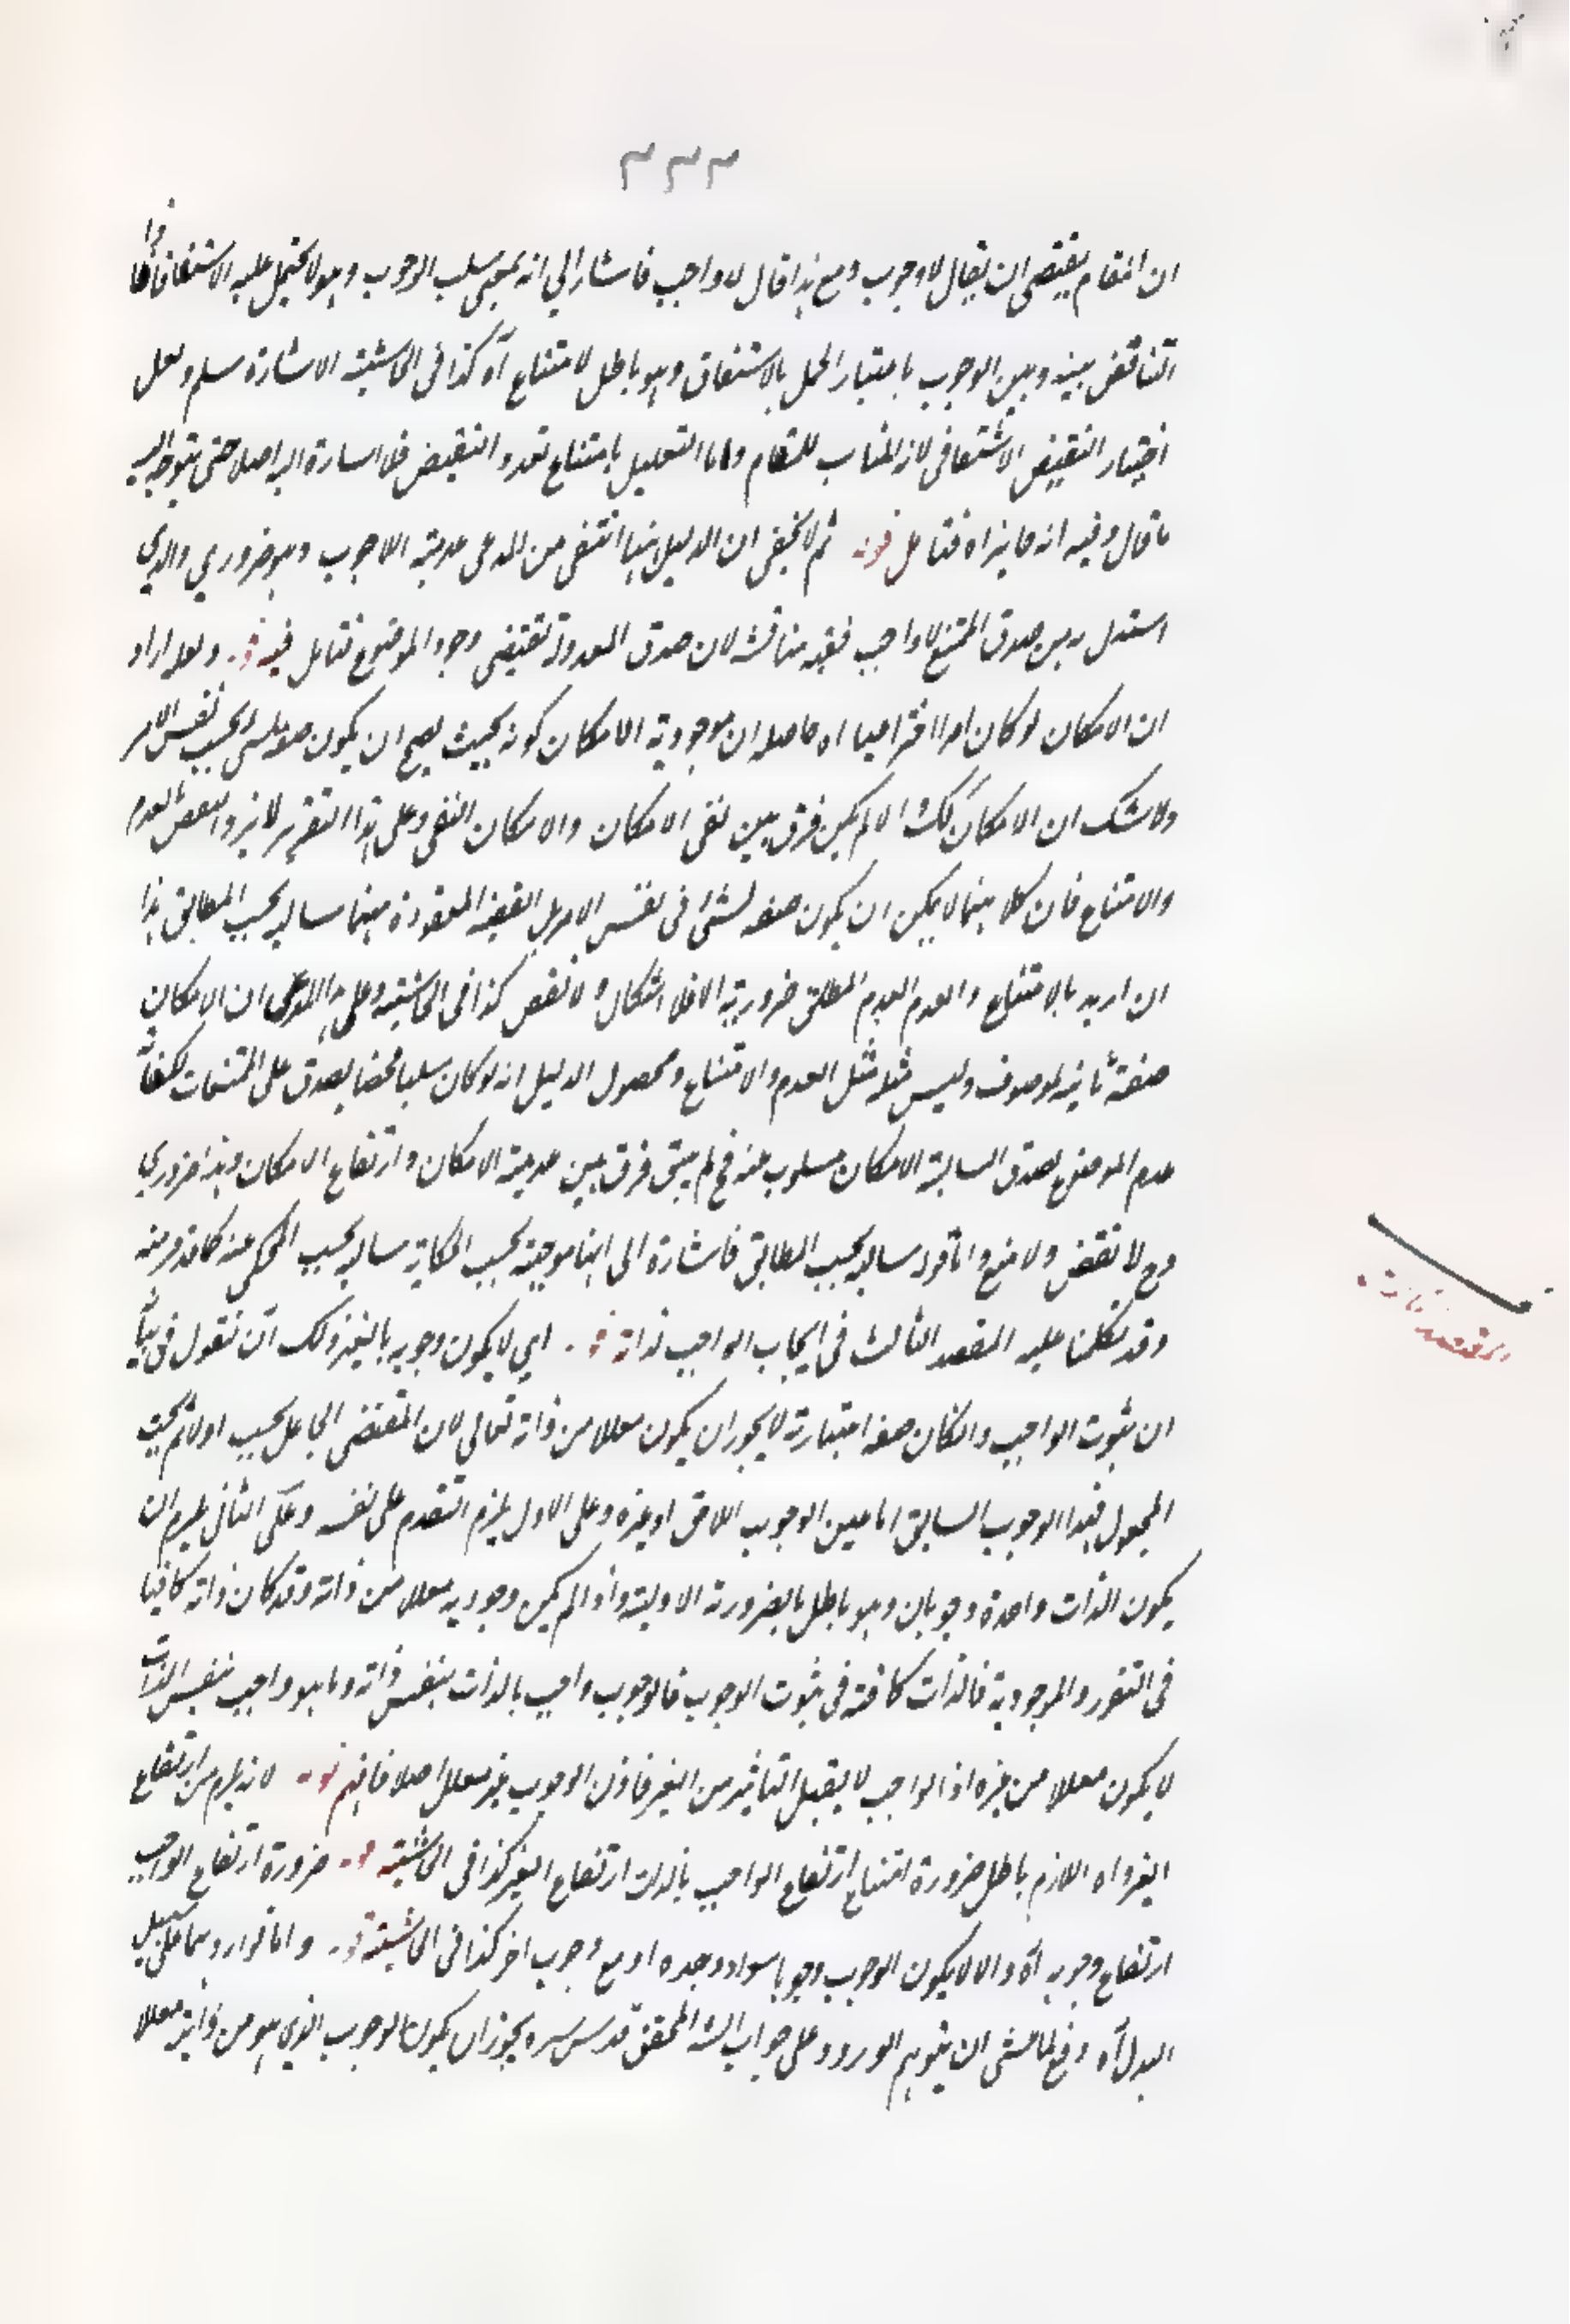 ٣٣٣
ان المقام يقتضى ان يقال لا وجوب ومع هذا قال لا واجب فاشار الى انه بمعنى سلب الوجوب وهو لا يحتمل عليه الا اشتقاقا واما
التناقض بينه وبين الوجوب باعتبار الحمل بالاشتقاق وهو باطل لامتناع آه كذا فى الحاشية الاشارة سلم ولعل
اختيار النقيض الاشتقاقى لانه المناسب للمقام واما التعليل بامتناع تعدد النقيض فلا اسارة اليه اصلا حتى يتوجه اليه
ما قال وفيه انه ما يراه فتامل قوله ثم لا يخفى ان الدليل انتفى من المدعى عدمية اللا وجوب وهو ضرورى والذى
استدل به من صدق الممتنع لا واجب ففيه مناقشة لان صدق المعدولة تقتضى وجود الموضوع فتامل فيه قوله ولعله اراد
ان الامكان لو كان امرا اعتراضيا اه حاصله ان موجودية الامكان كونه بحيث يصح ان يكون صفة لشئ بحسب نفس الامر
ولا شك ان الامكان كذلك والا لم يكن فرق بين نفى الامكان والامكان المنفى وعلى هذا التقرير لا يرد النقض بالعدم
والامتناع فان كلا منهما لا يمكن ان يكون صفة لشئ فى نفس الامر بل القضية المعقودة منهما سالبة بحسب المطابق هذا
ان اريد بالامتناع والعدم العدم المطلق ضرورية والا فلا اشكال ولا نقض كذا فى الحاشية وعلى هذا المدعى ان الامكان
صفة ثابتة لموصوف وليس مثله مثل العدم والامتناع ومحصول الدليل انه لو كان سلبا محضا يصدق على الممتنعات لكفاية
عدم الموضوع لصدق السالبة الامكان مسلوب عنه فح لم يبق فرق بين عدمية الامكان وارتفاع الامكان وهذا ضرورى
وح لا نقض ولا منع والقول سالبة بحسب المطابق فاشارة الى انها موجبة بحسب الحكاية سالبة بحسب المحكى عنه كما قد مر منه
وقد تكلمنا عليه المقصد الثالث فى ايجاب الواجب لذاته قوله اى لا يكون وجوبه بالغير ولك ان نقول فى بيانه
ان ثبوت الواجب وان كان صفة اعتبارية لا يجوز ان يكون معللا من ذاته تعالى لان المقتضى الجاعل يجب اولا ثم يجب
المجعول فهذا الوجوب السابق اما عين الوجوب اللاحق او غيره وعلى الاول يلزم التقدم على نفسه وعلى الثانى يلزم ان
يكون الذات واحدة وجوبان وهو باطل بالضرورة الاولية واذا لم يكن وجوبه معللا من ذاته وقد كان ذاته كافيا
فى التقرر والموجودية فالذات كافية فى ثبوت الوجوب فالوجوب واجب بالذات بنفس ذاته وما هو واجب بنفس الذات
لا يكون معللا من غيره اذ الواجب لا يقبل التاثير من الغير فاذن الوجوب غير معلل اصلا فافهم قوله لانه يلزم من ارتفاع
الغير اه اللازم باطل ضرورة امتناع ارتفاع الواجب بالذات ارتفاع الغير كذا فى الحاشية قوله ضرورة ارتفاع الواجب
ارتفاع وجوبه آه والا لا يكون الوجوب وجوبا سواء وجده او مع وجوب اخر كذا فى الحاشية قوله واما توارد هما على سبيل
البدل آه دفع لما عسى ان يتوهم الورود على جواب الش المحقق قدس سره يجوز ان يكون الوجوب الذى هو من ذاته معللا
المقصد